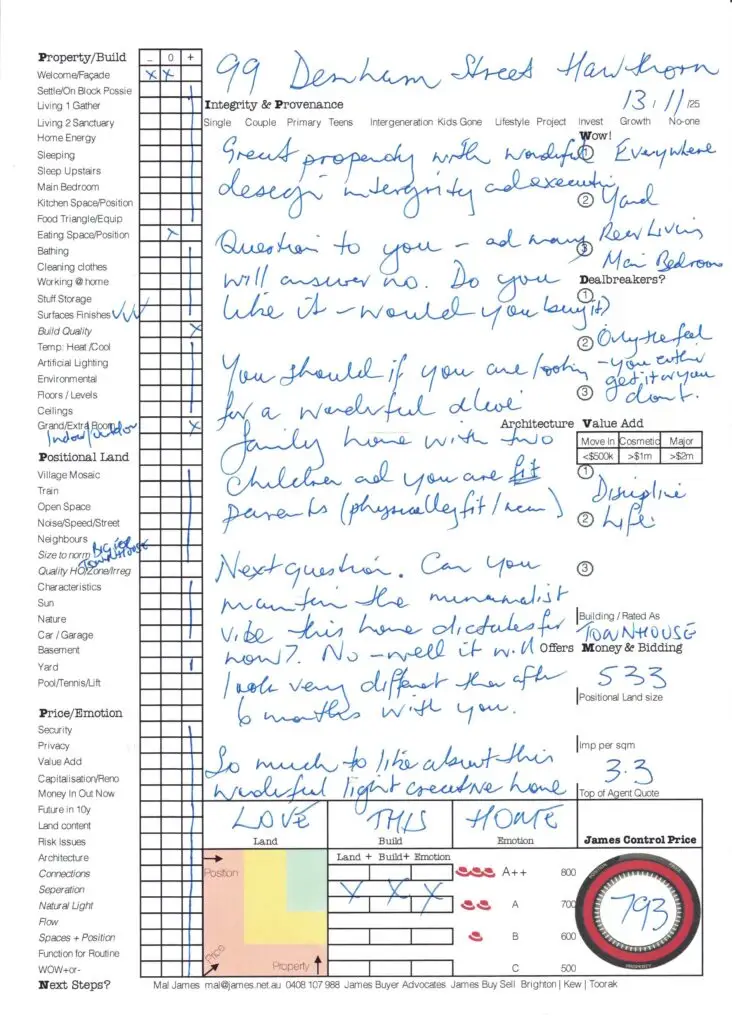 Property/Build
_ 0 +
99 Denham Street Hawthorn
Welcome/Façade X X
Settle/On Block Possie
13/11/25
Living 1 Gather
Integrity & Provenance
Living 2 Sanctuary
Single Couple Primary Teens Intergeneration Kids Gone Lifestyle Project Invest Growth No-one
Home Energy
Sleeping
Sleep Upstairs
Main Bedroom
Kitchen Space/Position
Food Triangle/Equip
Eating Space/Position X
Bathing
Cleaning clothes
Working @ home
Stuff Storage
Surfaces Finishes VVV
Build Quality X
Temp: Heat /Cool
Artificial Lighting
Environmental
Floors / Levels
Ceilings
Grand/Extra Room X
Indoor/outdoor
Positional Land
Village Mosaic
Train
Open Space
Noise/Speed/Street
Neighbours
Size to norm BIG FOR
TOWNHOUSE
Quality HO/Zone/Irreg
Characteristics
Sun
Nature
Car / Garage
Basement
Yard
Pool/Tennis/Lift
Price/Emotion
Security
Privacy
Value Add
Capitalisation/Reno
Money In Out Now
Future in 10y
Land content
Risk Issues
Architecture
Connections
Seperation
Natural Light
Flow
Spaces + Position
Function for Routine
WOW+or-
Next Steps?
Great property with wonderful
design intergrity and execution
Question to you – ad many
will answer no. Do you
like it – would you buy it?
You should if you are looking
for a wonderful
family home with two
children ad you are fit
parents (physically fit / new)
Next question. Can you
maintain the minimalist
vibe this home dictates for
now? No – well it will
look very different then after
6 months with you.
So much to like about this
wonderful light executive home
LOVE THIS HOME
Wow!
① Everywhere
② Yard
③ Rear Living
Main Bedroom
Dealbreakers?
①
② Only the feel
– you either
get it or you
③ don't.
Architecture Value Add
Move In Cosmetic Major
<$500k >$1m >$2m
①
Discipline
② Life
③
Building / Rated As
TOWNHOUSE
Offers Money & Bidding
533
Positional Land size
Imp per sqm
3.3
Top of Agent Quote
Land Build Emotion James Control Price
Position
Price
Property
Land + Build + Emotion
X X X
A++ 800
A 700
B 600
C 500
793
POSITION
PRICE
PROPERTY
Mal James mal@james.net.au 0408 107 988 James Buyer Advocates James Buy Sell Brighton | Kew | Toorak